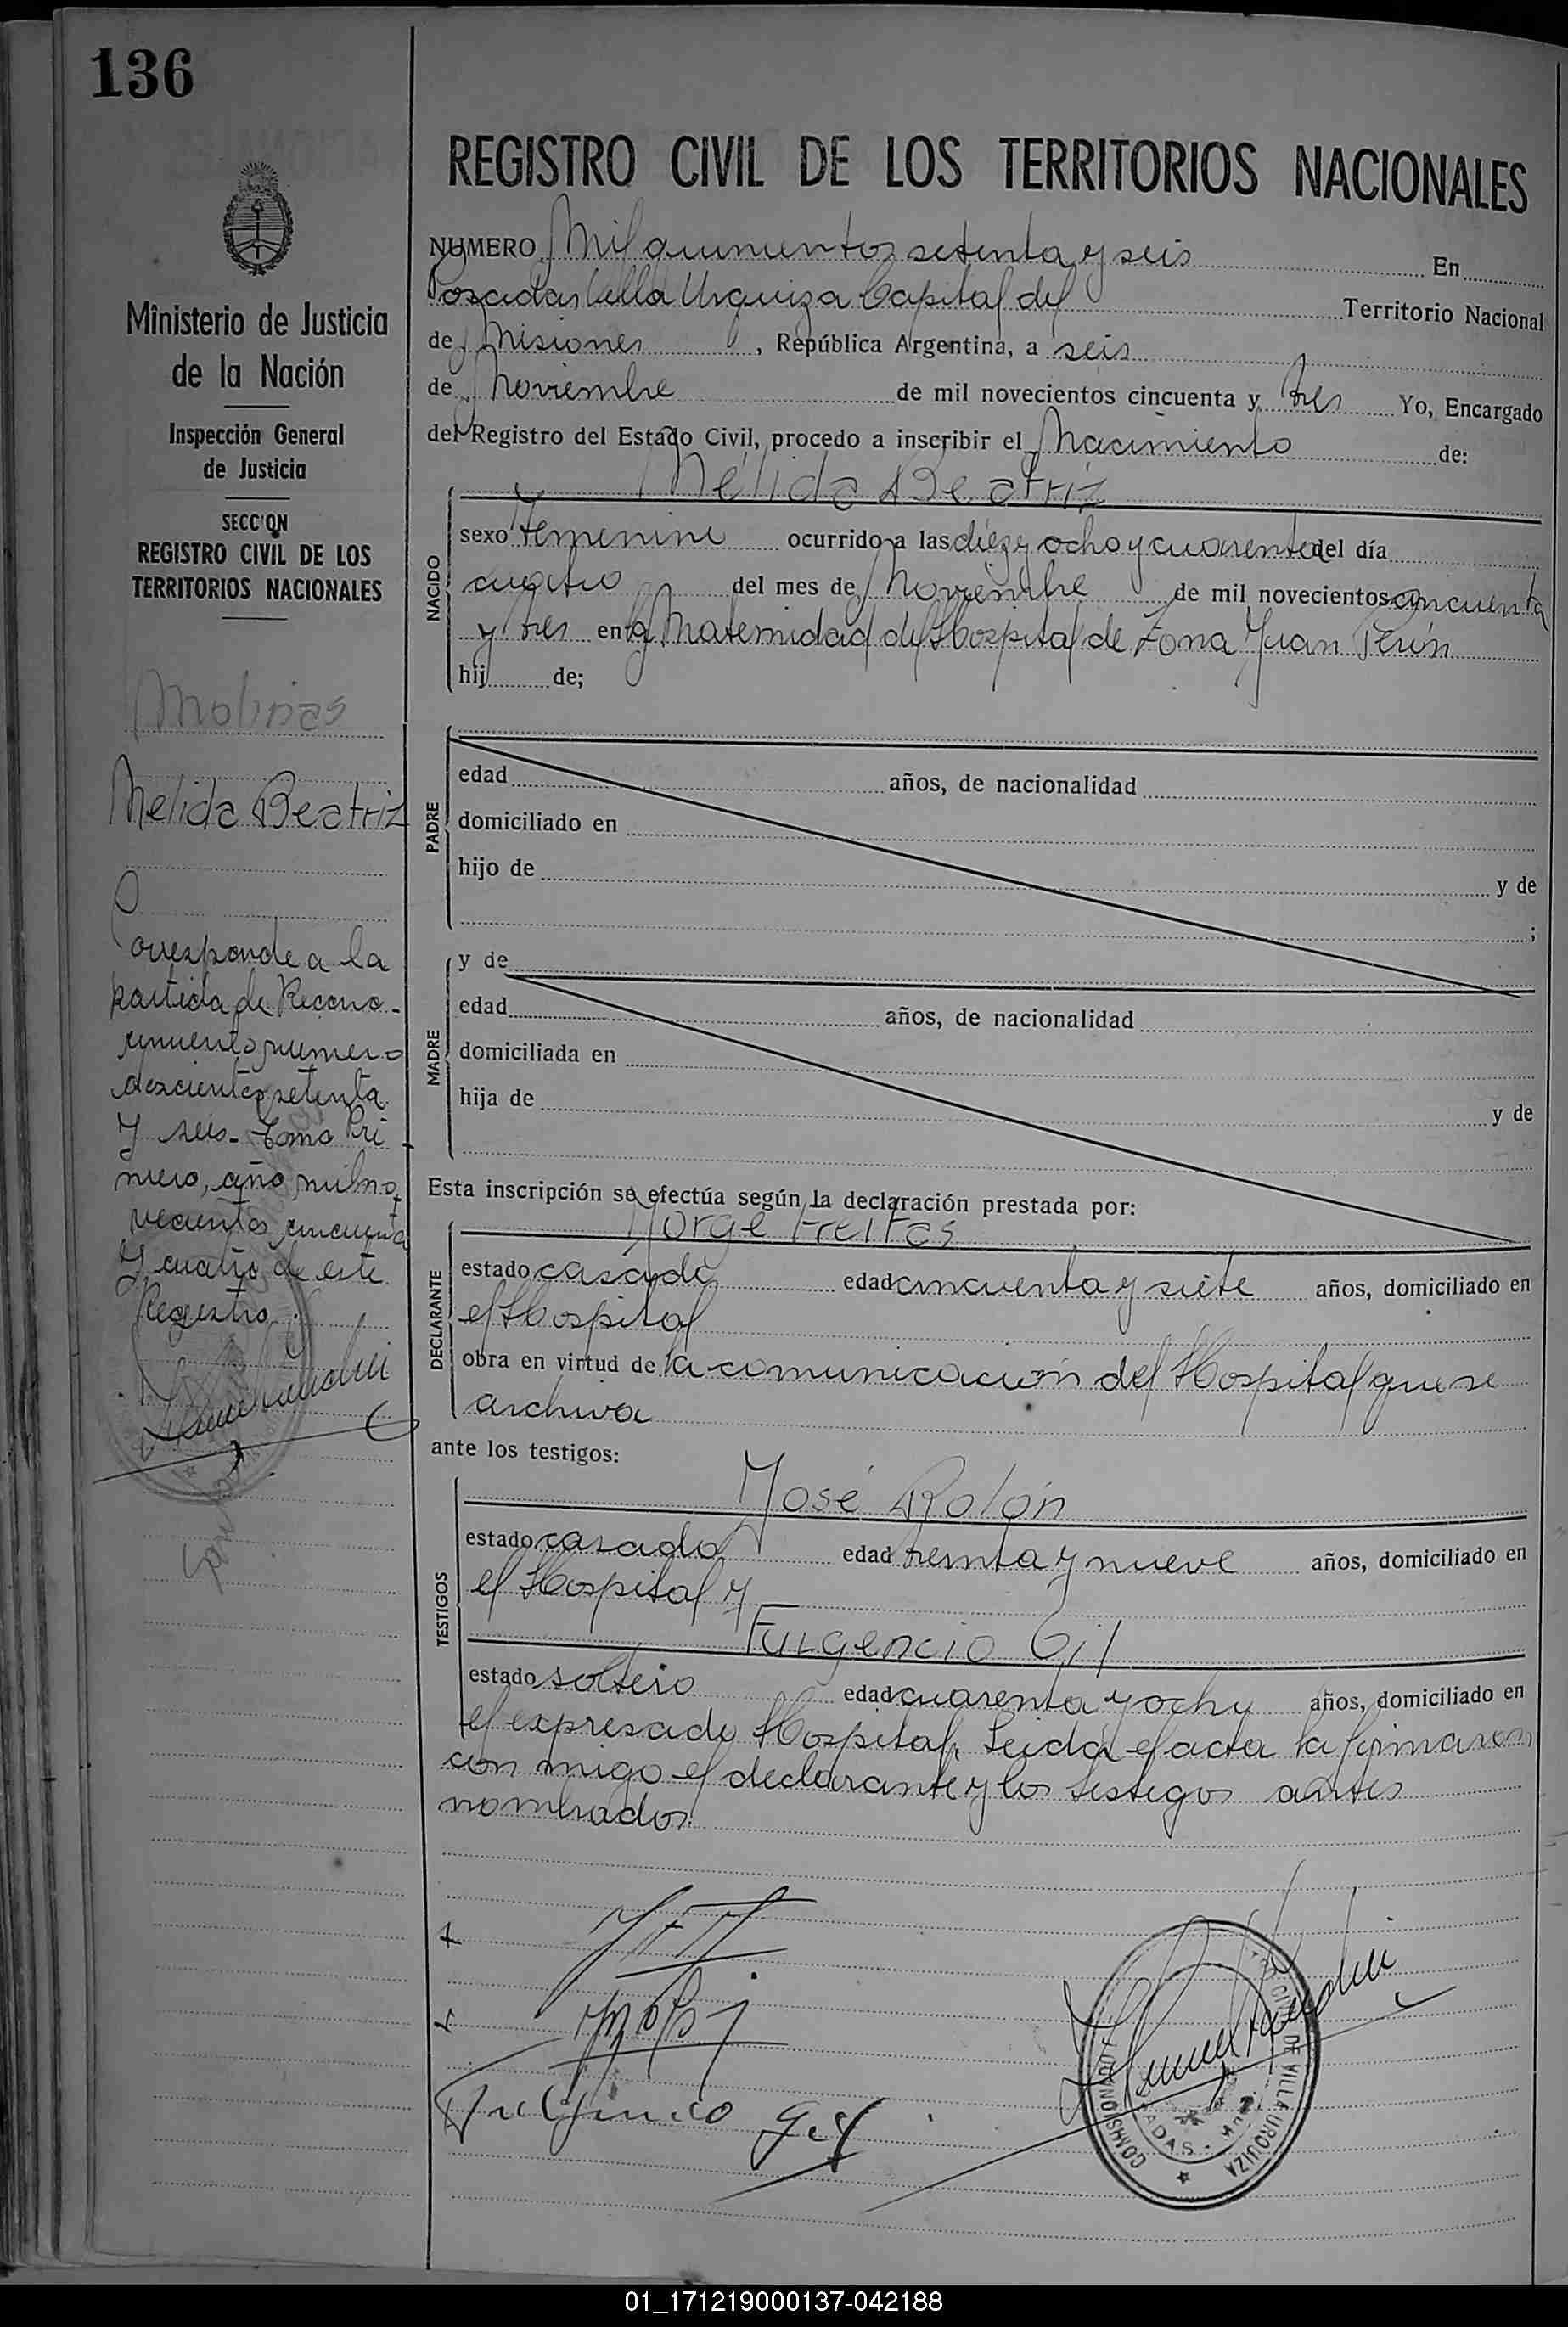 136
REGISTRO CIVIL DE LOS TERRITORIOS NACIONALES
Ministerio de Justicia
de la Nación
Inspección General
de Justicia
SECC'ON
REGISTRO CIVIL DE LOS
TERRITORIOS NACIONALES
Molinas
Nelida Beatriz
Corresponde a la
partida de Recono-
cimiento numero
doscientos setenta
y seis- tomo Pri-
mero, año mil no-
vecientos cincuenta
y cuatro de este
Registro.
NUMERO Mil quinientos setenta y seis En
Posadas Villa Urquiza Capital del Territorio Nacional
de Misiones, República Argentina, a seis
de Noviembre de mil novecientos cincuenta y tres Yo, Encargado
del Registro del Estado Civil, procedo a inscribir el Nacimiento de:
Nélida Beatriz
NACIDO
sexo femenino ocurrido a las diez y ocho y cuarenta del día
cuatro del mes de Noviembre de mil novecientos cincuenta
y tres en la Maternidad del Hospital de Zona Juan Perón
hij de;
PADRE
edad años, de nacionalidad
domiciliado en
hijo de y de
;
MADRE
y de
edad años, de nacionalidad
domiciliada en
hija de y de
Esta inscripción se efectúa según la declaración prestada por:
Jorge Freitas
DECLARANTE
estado casado edad cincuenta y siete años, domiciliado en
el Hospital
obra en virtud de la comunicación del Hospital que se
archiva
ante los testigos:
José Rolón
TESTIGOS
estado casado edad treinta y nueve años, domiciliado en
el Hospital y
Fulgencio Gil
estado soltero edad cuarenta y ocho años, domiciliado en
el expresado Hospital. Leida el acta la firmaron
con migo el declarante y los testigos antes
nombrados.
Fulgencio Gil
DE VILLA URQUIZA
01_171219000137-042188